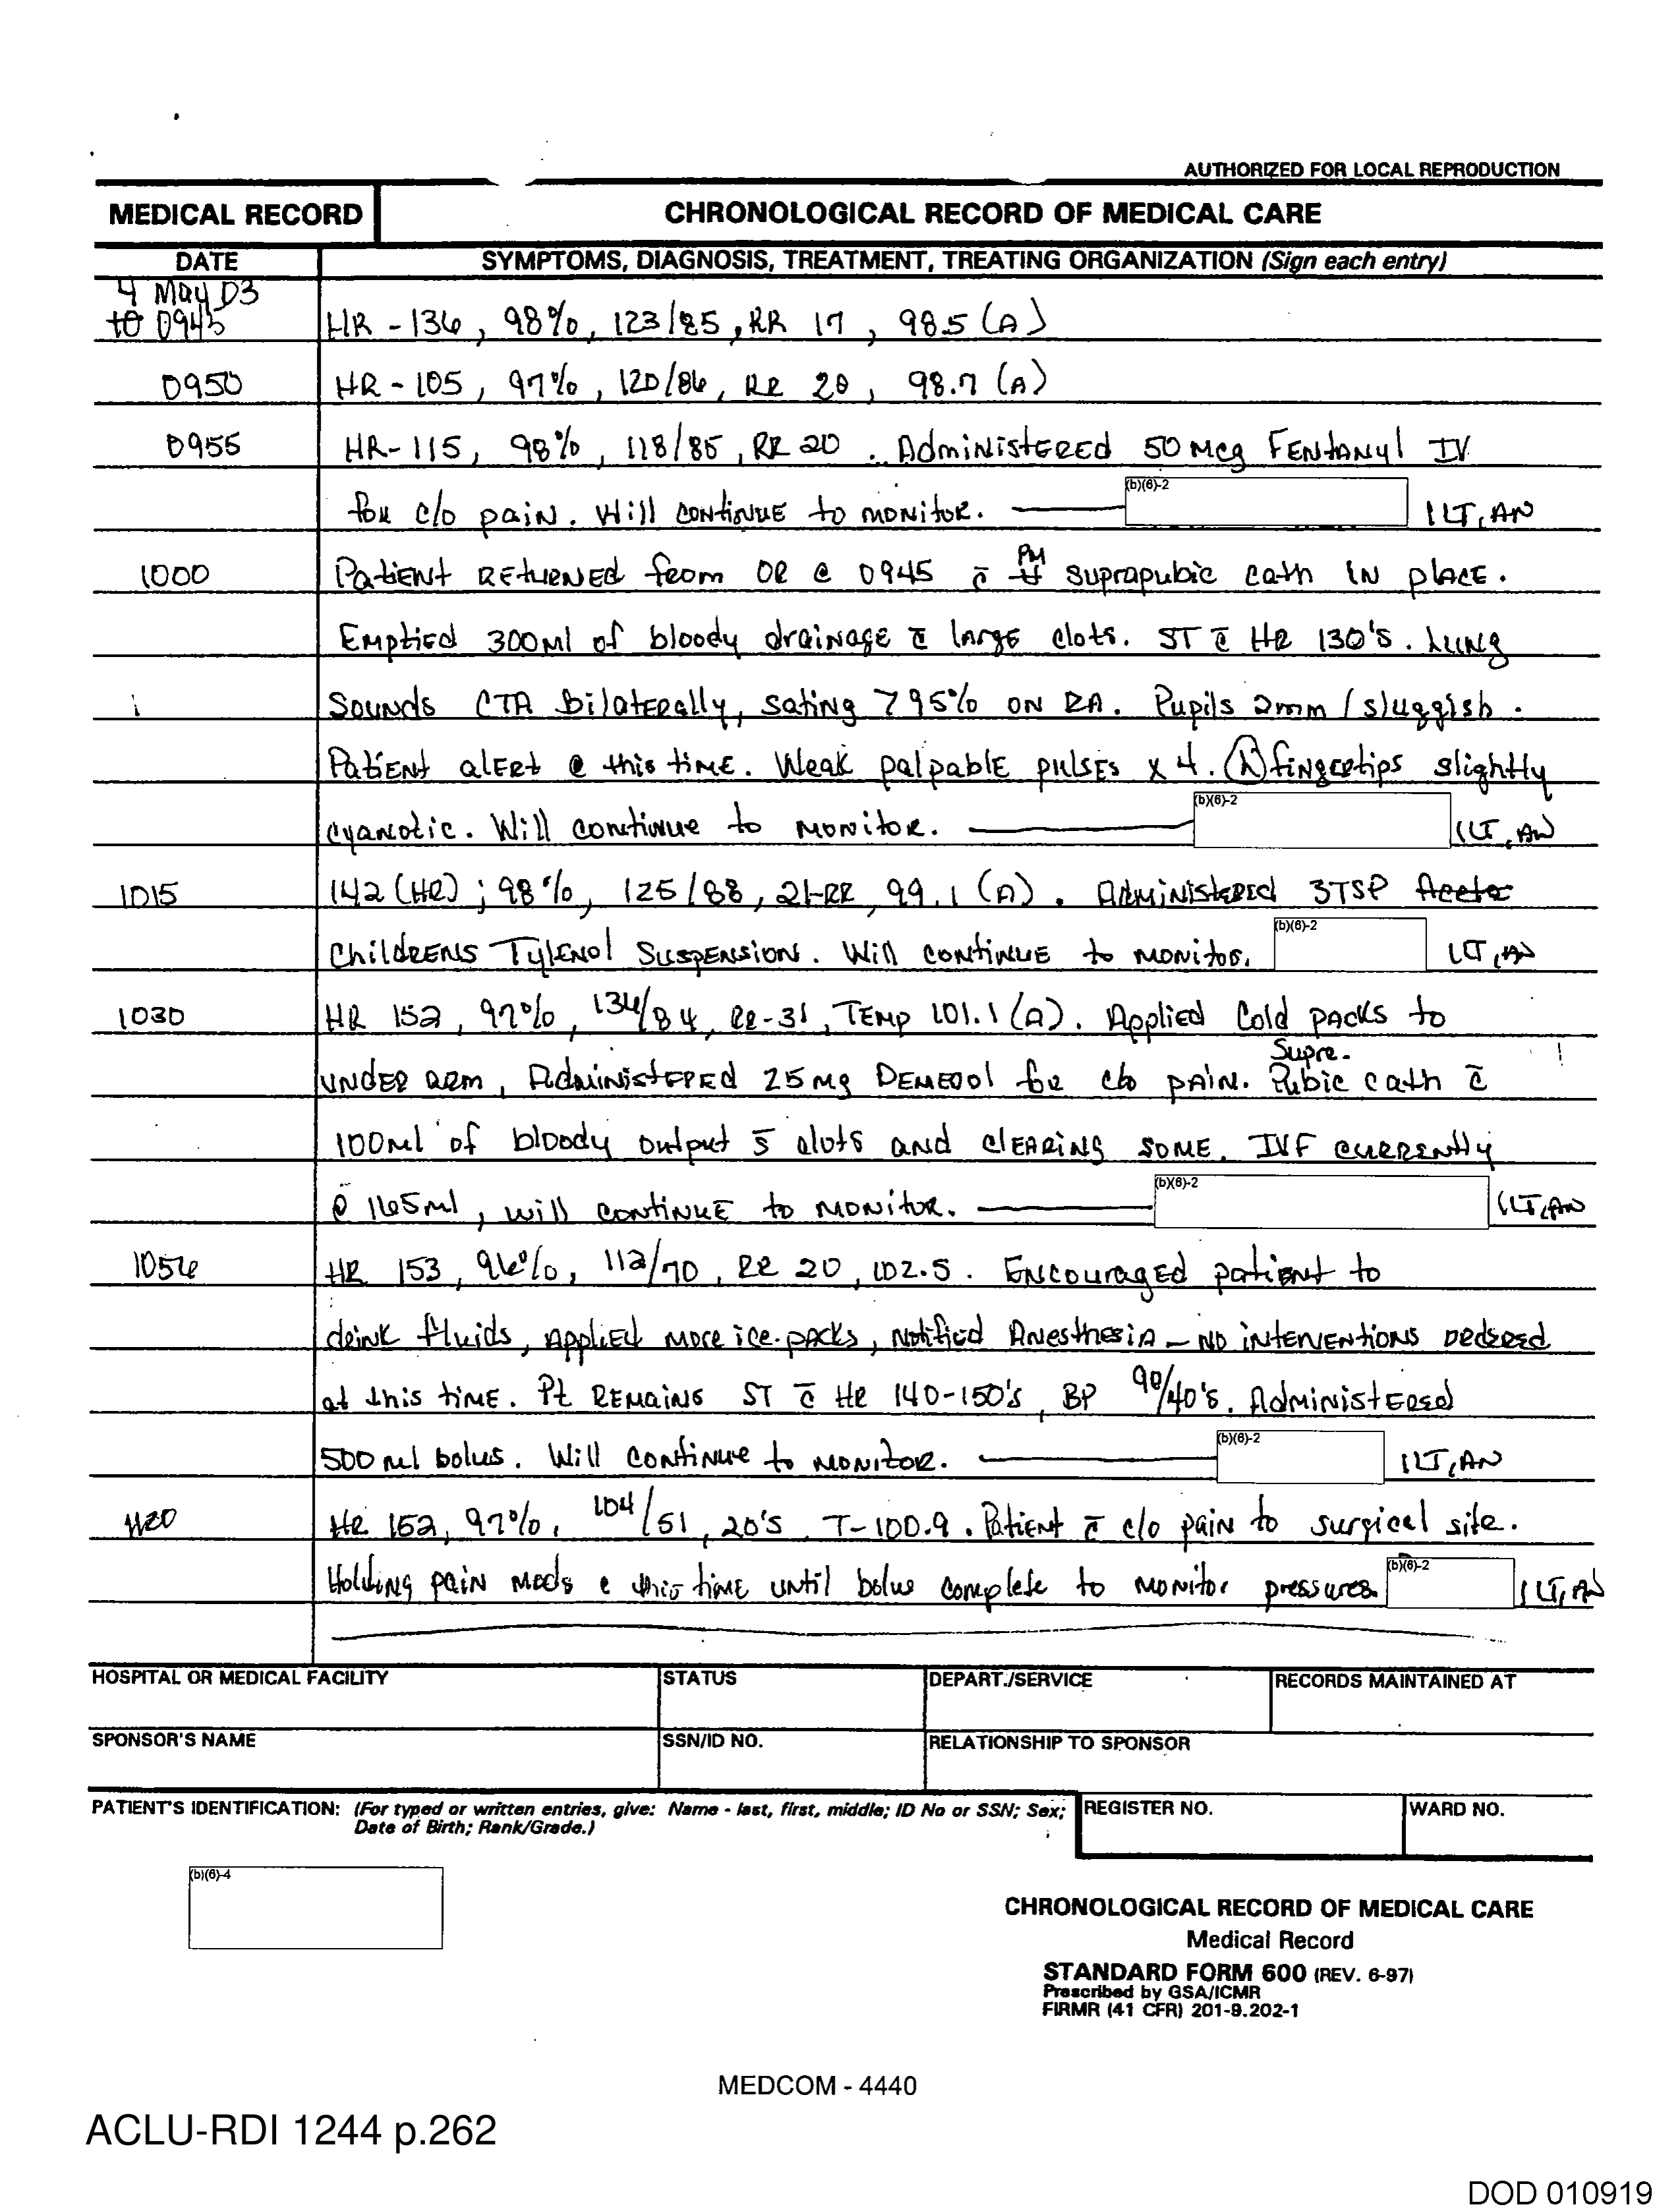 AUTHORIZED FOR LOCAL REPRODUCTION
MEDICAL RECORD
CHRONOLOGICAL RECORD OF MEDICAL CARE
DATE
SYMPTOMS, DIAGNOSIS, TREATMENT, TREATING ORGANIZATION (Sign each entry)
4 May 03
0945 HR - 136, 98%, 123/85, RR 17, 98.5 (A)
0950 HR - 105, 97%, 120/86, RR 20, 98.7 (A)
0955 HR-115, 98%, 118/85, RR 20. Administered 50 mcg Fentanyl IV
for c/o pain. Will continue to monitor. (b)(6)-2 1LT, AN
1000 Patient returned from OR @ 0945 c̄ suprapubic cath in place.
Emptied 300ml of bloody drainage c̄ large clots. ST c̄ HR 130's. Lung
sounds CTA bilaterally, sating >95% on RA. Pupils 2mm / sluggish.
Patient alert @ this time. Weak palpable pulses x 4. fingertips slightly
cyanotic. Will continue to monitor. (b)(6)-2 1LT, AN
1015 142 (HR); 98%, 125/88, 21-RR, 99.1 (A). Administered 3TSP Aceta
Childrens Tylenol Suspension. Will continue to monitor. (b)(6)-2 LT, AN
1030 HR 152, 97%, 134/84, RR-31, Temp 101.1 (A). Applied Cold packs to
under arm, Administered 25 mg Demerol for c/o pain. Supra-Pubic cath c̄
100ml of bloody output s̄ clots and clearing some. IVF currently
@ 165ml, will continue to monitor. (b)(6)-2 1LT, AN
1056 HR 153, 96%, 112/70, RR 20, 102.5. Encouraged patient to
drink fluids, applied more ice-packs, notified Anesthesia - no interventions ordered
at this time. Pt remains ST c̄ HR 140-150's, BP 90/40's. Administered
500 ml bolus. Will continue to monitor. (b)(6)-2 1LT, AN
1120 HR 152, 97%, 104/51, 20's, T-100.9. Patient c̄ c/o pain to surgical site.
Holding pain meds @ this time until bolus complete to monitor pressures (b)(6)-2 1LT, AN
HOSPITAL OR MEDICAL FACILITY
STATUS
DEPART./SERVICE
RECORDS MAINTAINED AT
SPONSOR'S NAME
SSN/ID NO.
RELATIONSHIP TO SPONSOR
PATIENT'S IDENTIFICATION: (For typed or written entries, give: Name - last, first, middle; ID No or SSN; Sex;
Date of Birth; Rank/Grade.)
REGISTER NO.
WARD NO.
(b)(6)-4
CHRONOLOGICAL RECORD OF MEDICAL CARE
Medical Record
STANDARD FORM 600 (REV. 6-97)
Prescribed by GSA/ICMR
FIRMR (41 CFR) 201-9.202-1
MEDCOM - 4440
ACLU-RDI 1244 p.262
DOD 010919